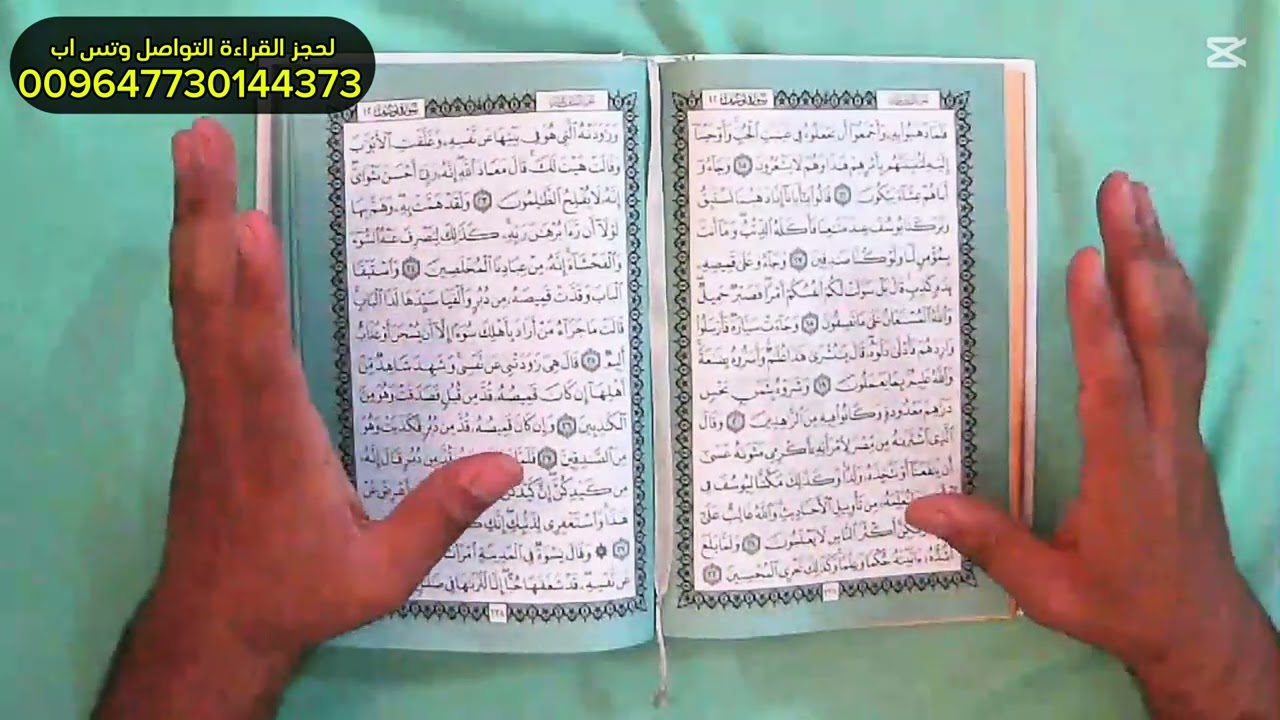 لحجز القراءة التواصل وتس اب
009647730144373
سورة يوسف ١٢
فَلَمَّا ذَهَبُوا۟ بِهِۦ وَأَجْمَعُوٓا۟ أَن يَجْعَلُوهُ فِى غَيَٰبَتِ ٱلْجُبِّ وَأَوْحَيْنَآ
إِلَيْهِ لَتُنَبِّئَنَّهُم بِأَمْرِهِمْ هَٰذَا وَهُمْ لَا يَشْعُرُونَ ١٥ وَجَآءُوٓ
أَبَاهُمْ عِشَآءً يَبْكُونَ ١٦ قَالُوا۟ يَٰٓأَبَانَآ إِنَّا ذَهَبْنَا نَسْتَبِقُ
وَتَرَكْنَا يُوسُفَ عِندَ مَتَٰعِنَا فَأَكَلَهُ ٱلذِّئْبُ وَمَآ أَنتَ
بِمُؤْمِنٍ لَّنَا وَلَوْ كُنَّا صَٰدِقِينَ ١٧ وَجَآءُو عَلَىٰ قَمِيصِهِۦ
بِدَمٍ كَذِبٍ قَالَ بَلْ سَوَّلَتْ لَكُمْ أَنفُسُكُمْ أَمْرًا فَصَبْرٌ جَمِيلٌ
وَٱللَّهُ ٱلْمُسْتَعَانُ عَلَىٰ مَا تَصِفُونَ ١٨ وَجَآءَتْ سَيَّارَةٌ فَأَرْسَلُوا۟
وَارِدَهُمْ فَأَدْلَىٰ دَلْوَهُۥ قَالَ يَٰبُشْرَىٰ هَٰذَا غُلَٰمٌ وَأَسَرُّوهُ بِضَٰعَةً
وَٱللَّهُ عَلِيمٌۢ بِمَا يَعْمَلُونَ ١٩ وَشَرَوْهُ بِثَمَنٍۭ بَخْسٍ
دَرَٰهِمَ مَعْدُودَةٍ وَكَانُوا۟ فِيهِ مِنَ ٱلزَّٰهِدِينَ ٢٠ وَقَالَ
ٱلَّذِى ٱشْتَرَىٰهُ مِن مِّصْرَ لِٱمْرَأَتِهِۦٓ أَكْرِمِى مَثْوَىٰهُ عَسَىٰٓ
أَن يَنفَعَنَآ أَوْ نَتَّخِذَهُۥ وَلَدًا وَكَذَٰلِكَ مَكَّنَّا لِيُوسُفَ فِى
وَلِنُعَلِّمَهُۥ مِن تَأْوِيلِ ٱلْأَحَادِيثِ وَٱللَّهُ غَالِبٌ عَلَىٰٓ
أَكْثَرَ ٱلنَّاسِ لَا يَعْلَمُونَ ٢١ وَلَمَّا بَلَغَ
أَشُدَّهُۥٓ ءَاتَيْنَٰهُ حُكْمًا وَعِلْمًا وَكَذَٰلِكَ نَجْزِى ٱلْمُحْسِنِينَ ٢٢
٢٣٧
سورة يوسف ١٢
وَرَٰوَدَتْهُ ٱلَّتِى هُوَ فِى بَيْتِهَا عَن نَّفْسِهِۦ وَغَلَّقَتِ ٱلْأَبْوَٰبَ
وَقَالَتْ هَيْتَ لَكَ قَالَ مَعَاذَ ٱللَّهِ إِنَّهُۥ رَبِّىٓ أَحْسَنَ مَثْوَاىَ
إِنَّهُۥ لَا يُفْلِحُ ٱلظَّٰلِمُونَ ٢٣ وَلَقَدْ هَمَّتْ بِهِۦ وَهَمَّ بِهَا
لَوْلَآ أَن رَّءَا بُرْهَٰنَ رَبِّهِۦ كَذَٰلِكَ لِنَصْرِفَ عَنْهُ ٱلسُّوٓءَ
وَٱلْفَحْشَآءَ إِنَّهُۥ مِنْ عِبَادِنَا ٱلْمُخْلَصِينَ ٢٤ وَٱسْتَبَقَا
ٱلْبَابَ وَقَدَّتْ قَمِيصَهُۥ مِن دُبُرٍ وَأَلْفَيَا سَيِّدَهَا لَدَا ٱلْبَابِ
قَالَتْ مَا جَزَآءُ مَنْ أَرَادَ بِأَهْلِكَ سُوٓءًا إِلَّآ أَن يُسْجَنَ أَوْ عَذَابٌ
أَلِيمٌ ٢٥ قَالَ هِىَ رَٰوَدَتْنِى عَن نَّفْسِى وَشَهِدَ شَاهِدٌ مِّنْ
أَهْلِهَآ إِن كَانَ قَمِيصُهُۥ قُدَّ مِن قُبُلٍ فَصَدَقَتْ وَهُوَ مِنَ
ٱلْكَٰذِبِينَ ٢٦ وَإِن كَانَ قَمِيصُهُۥ قُدَّ مِن دُبُرٍ فَكَذَبَتْ وَهُوَ
مِنَ ٱلصَّٰدِقِينَ ٢٧ مِن دُبُرٍ قَالَ إِنَّهُۥ
مِن كَيْدِكُنَّ إِنَّ كَيْدَكُنَّ أَعْرِضْ عَنْ
هَٰذَا وَٱسْتَغْفِرِى لِذَنۢبِكِ إِنَّكِ
٢٩ ۞ وَقَالَ نِسْوَةٌ فِى ٱلْمَدِينَةِ ٱمْرَأَتُ
عَن نَّفْسِهِۦ قَدْ شَغَفَهَا حُبًّا إِنَّا لَنَرَىٰهَا فِى
٢٣٨